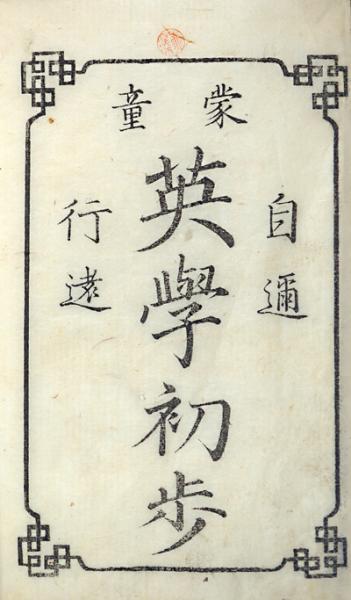 蒙童
自邇
英學初步
行遠